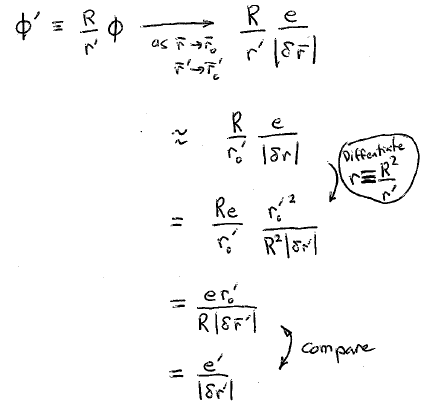 ϕ' ≡ R/r' ϕ ⟶ R/r' e/|δr̄|
as r̄→r̄₀
r̄'→r̄₀'
≈ R/r₀' e/|δr|
Differentiate
r ≡ R²/r'
= Re/r₀' r₀'²/R²|δr'|
= er₀'/R|δr̄'|
compare
= e'/|δr'|